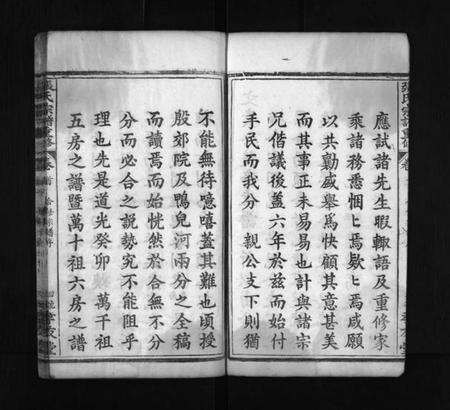 應試諸先生暇輙語及重修家
乘諸務悉悃匕焉歉匕焉咸願
以共勷盛舉爲快顧其意甚美
而其事正未易易也計與諸宗
兄偕議後蓋六年於兹而始付
手民而我分 親公支下則猶
不能無待噫嘻蓋其難也頃授
殷郊院及鴨兒河兩分之全稿
而讀焉而始恍然於合無不分
分而必合之説勢究不能阻乎
理也先是道光癸卯 萬千祖
五房之譜暨萬十祖六房之譜
氏宗譜
卷首